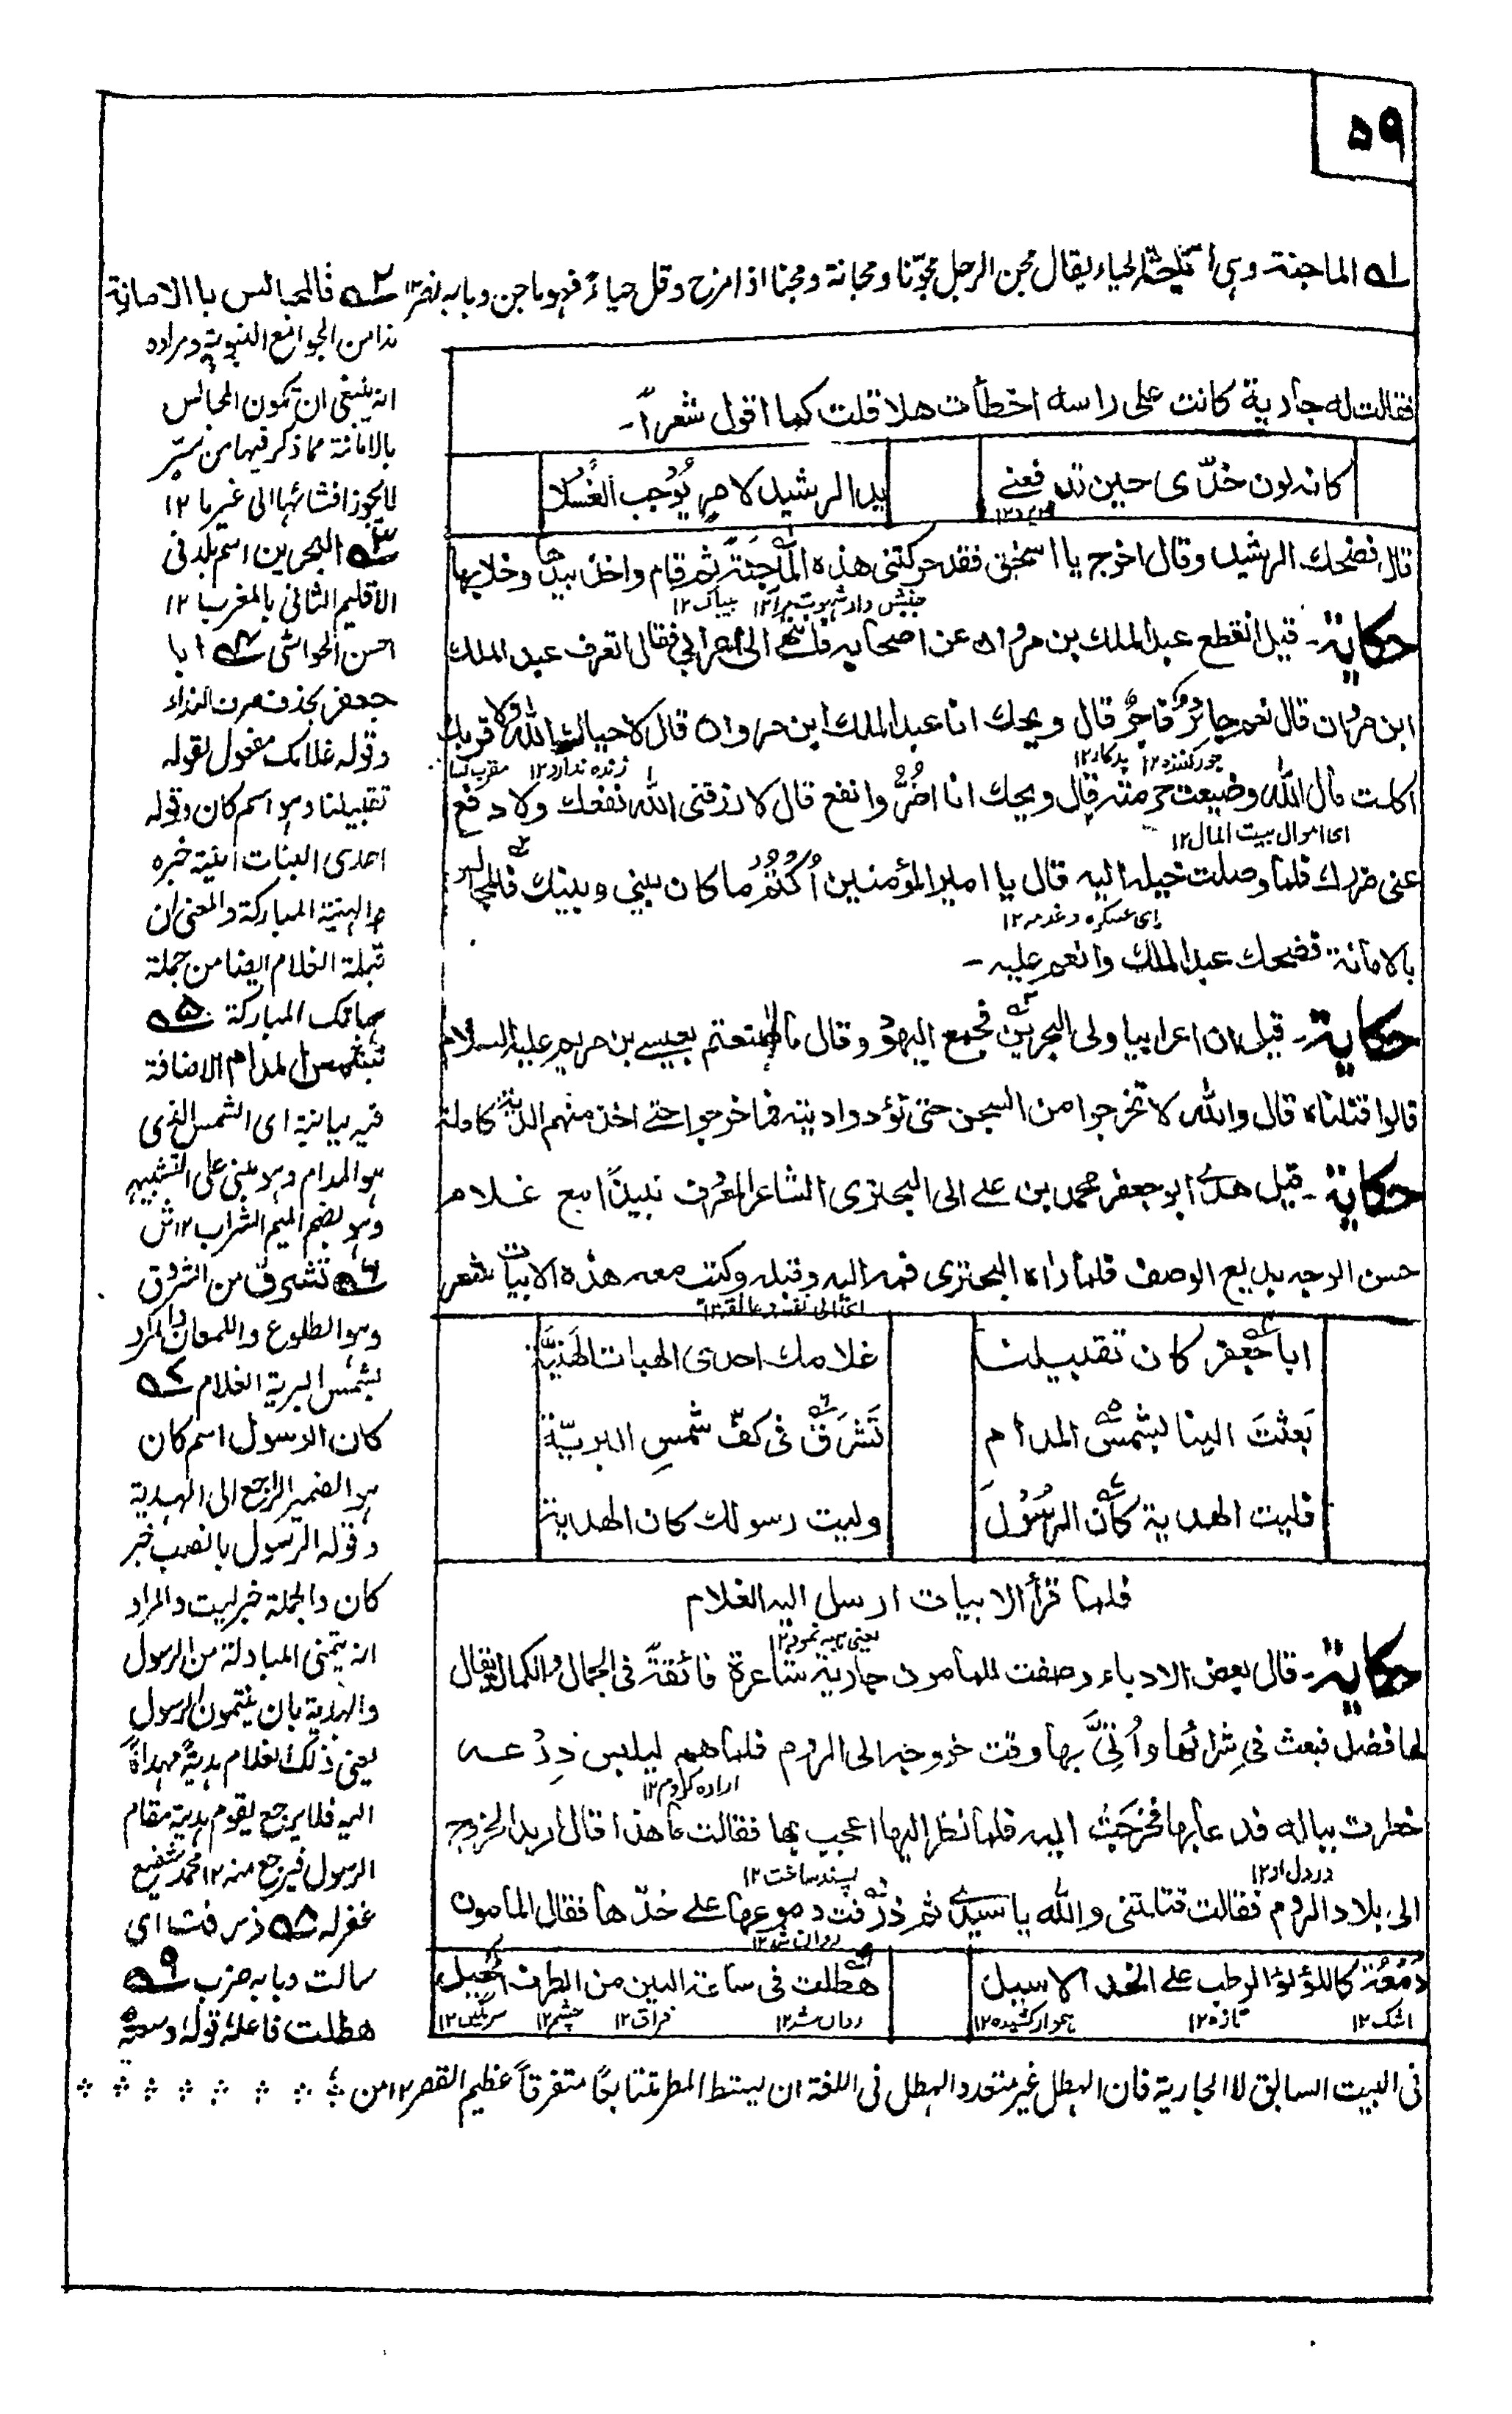 ٥٩
١ه الماجنة وہی القليلة الحياء يقال مجن الرجل مجونا ومجانة ومجنا اذا مزح وقل حياءً فهو ماجن وبابه نصر١٢ ٢ه فالمجالس بالامانة
فقالت له جارية كانت على راسه اخطأت هلا قلت كما اقول شعراً۔
كانه لون خدّى حين تدفعنے يد الرشيد لامر يُوجب الغُسُلا
قال فضحك الرشيد وقال اخرج يا اسحٰق فقد حركتنى هذه الماجنة ثم قام واخذ بيدها وخلا بها
جنبش داد شہوت مرا١٢ بيباك١٢
حكاية۔ قيل انقطع عبد الملك بن مروان عن اصحابه فانتهے الى اعرابي فقال اتعرف عبد الملك
ابن مروان قال نعم جائرٌ فاجرٌ قال ويحك انا عبد الملك ابن مروان قال لا حياك الله ولا قربك
جور كننده١٢ بدكار١٢ زنده ندارد١٢
اكلت مال الله وضيعت حرمته قال ويحك انا اضُرُّ وانفع قال لا رزقنى الله نفعك ولا دفع
اى اموال بيت المال١٢
عنى ضررك فلما وصلت خيله اليه قال يا امير المؤمنين اُكتُم ما كان بيني وبينك فالمجالس
اى عسكره وخدمه١٢
بالامانة فضحك عبد الملك وانعم عليه۔
حكاية۔ قيل ان اعرابيا ولى البحرين فجمع اليهود وقال ما صنعتم بعيسے بن مريم عليه السلام
قالوا قتلناه قال والله لا تخرجوا من السجن حتى تؤدوا ديته فما خرجوا حتے اخذ منهم الدية كاملة
حكاية۔ قيل هدٰى ابو جعفر محمد بن علے الى البحترى الشاعر المعروف نبيذاً مع غلام
حسن الوجه بديع الوصف فلما راه البحترى ضمه اليه وقبله وكتب معه هذه الابيات شعر
ابا جعفر كان تقبيلنا غلامك احدى الهبات الهَنِيَّة
بَعثتَ الينا لبشمس المدام تَشَرَّقُ فى كفّ شمسِ البريّة
فليت الهدية كان الرسُولَ وليت رسولك كان الهدية
فلما قرأ الابيات ارسل اليه الغلام
حكاية۔ قال بعض الادباء وصفت للمامون جارية شاعرة فائقةً فى الجمال والكمال يقال
لها فضل فبعث فى شرائها واُتِيَ بها وقت خروجه الى الروم فلما هم ليلبس دِرْعه
اراده كردم١٢
خطرت بباله فدعا بها فخرجَت اليه فلما نظر اليها اعجب بها فقالت ما هذا قال اريد الخروج
در دل او١٢ پسند ساخت١٢
الى بلاد الروم فقالت قتلتنى والله يا سيدى ثم ذرفت دموعها علے خدّها فقال المامون
روان شد١٢
دُمُعُه كاللؤلؤ الرطب علے الخد الاسيل هطلت فى ساعة البين من الطرف الكحيل
اشك١٢ تازه١٢ ہموار كشيده١٢ روان شد١٢ فراق١٢ چشم١٢ سرمگيں١٢
ہذا من الجوامع النبوية ومراده
انه ينبغى ان تكون المجالس
بالامانة مما ذكر فيها من سِرّ
لا يجوز افشائها الى غيرہا ١٢
٣ه البحرين اسم بلد فى
الاقليم الثانى بالمغرب ١٢
احسن الحواشى ٤ه ابا
جعفر بحذف حرف النداء
وقوله غلامك مفعول لقوله
تقبيلنا وہو اسم كان وقوله
احدى الہبات الہنية خبره
والہنية المباركة والمعنى ان
قبلة الغلام ايضا من جملة
ہباتك المباركة ٥ه
لبشمس المدام الاضافة
فيه بيانية اى الشمس الذى
ہو المدام وہو مبنى على التشبيہ
وہو بضم الميم الشراب ١٢ش
٦ه تشرق من الشروق
وہو الطلوع واللمعان والمراد
بشمس البرية الغلام ٧ه
كان الرسول اسم كان
ہو الضمير الراجع الى الہدية
وقوله الرسول بالنصب خبر
كان والجملة خبر ليت والمراد
انه يتمنى المبادلة من الرسول
والہدية بان يتمون الرسول
يعنى ذلك الغلام ہديةً مہداةً
اليه فلا يرجع ليقوم ہدية مقام
الرسول فيرجع منه ١٢ محمد شفيع
غفر له ٨ه ذرفت اى
سالت وبابه ضرب ٩ه
هطلت فاعله قوله دمعة
فى البيت السابق لا الجارية فان الہطل غير متعد والہطل فى اللغة ان يسقط المطر متتابعًا متفرقاً عظيم القطر ١٢ من